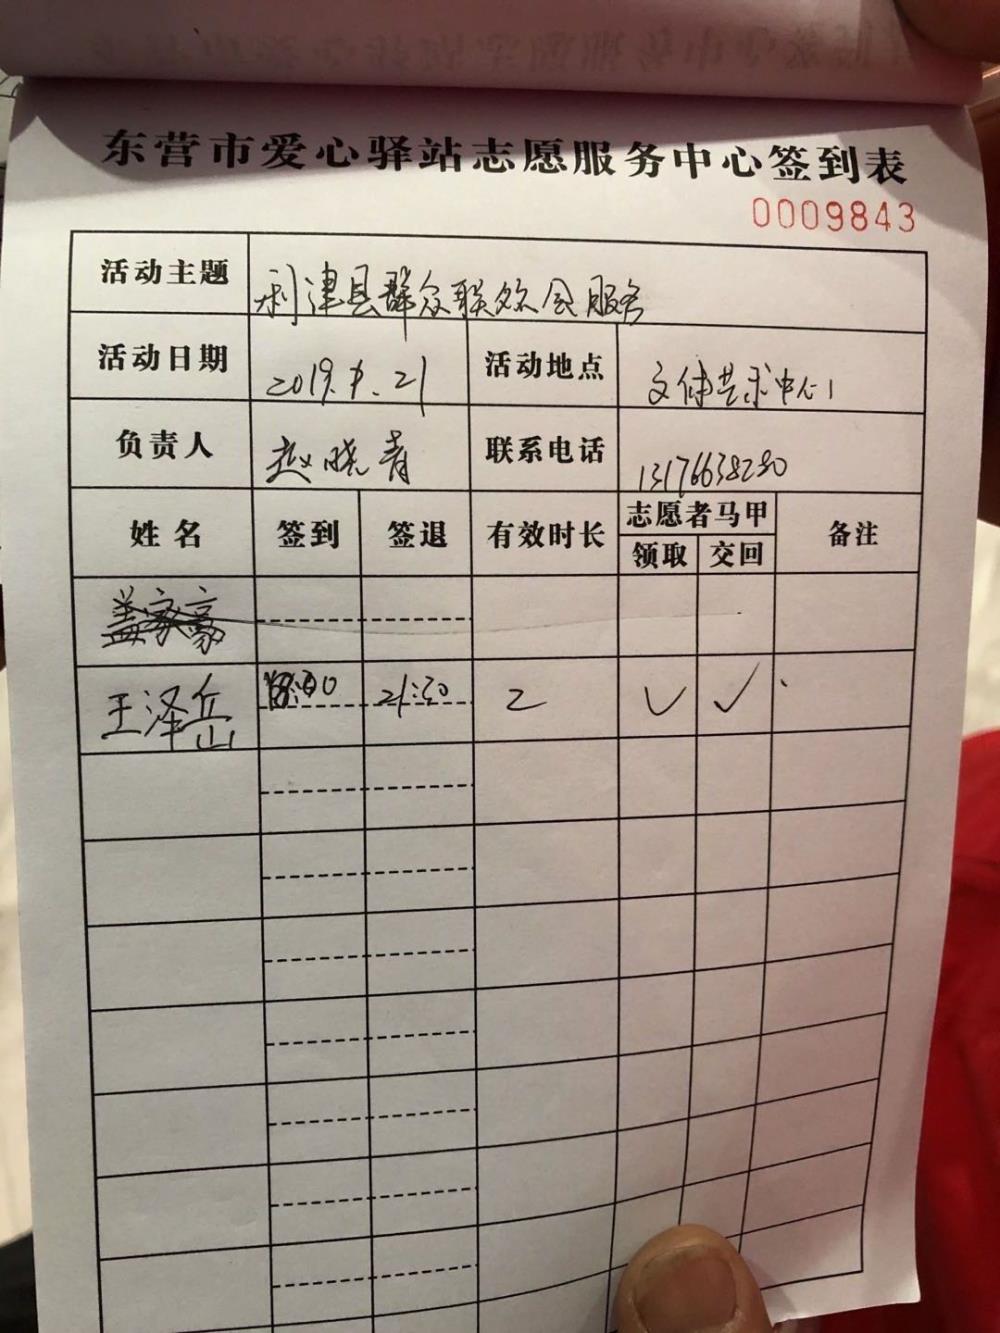 东营市爱心驿站志愿服务中心签到表
0009843
活动主题 利津县群众联欢会服务
活动日期 2019.9.21 活动地点 文体艺术中心
负责人 赵晓青 联系电话 13176638280
姓名 签到 签退 有效时长 志愿者马甲 备注
领取 交回
盖家豪
王泽岳 21:50 2 ✓ ✓